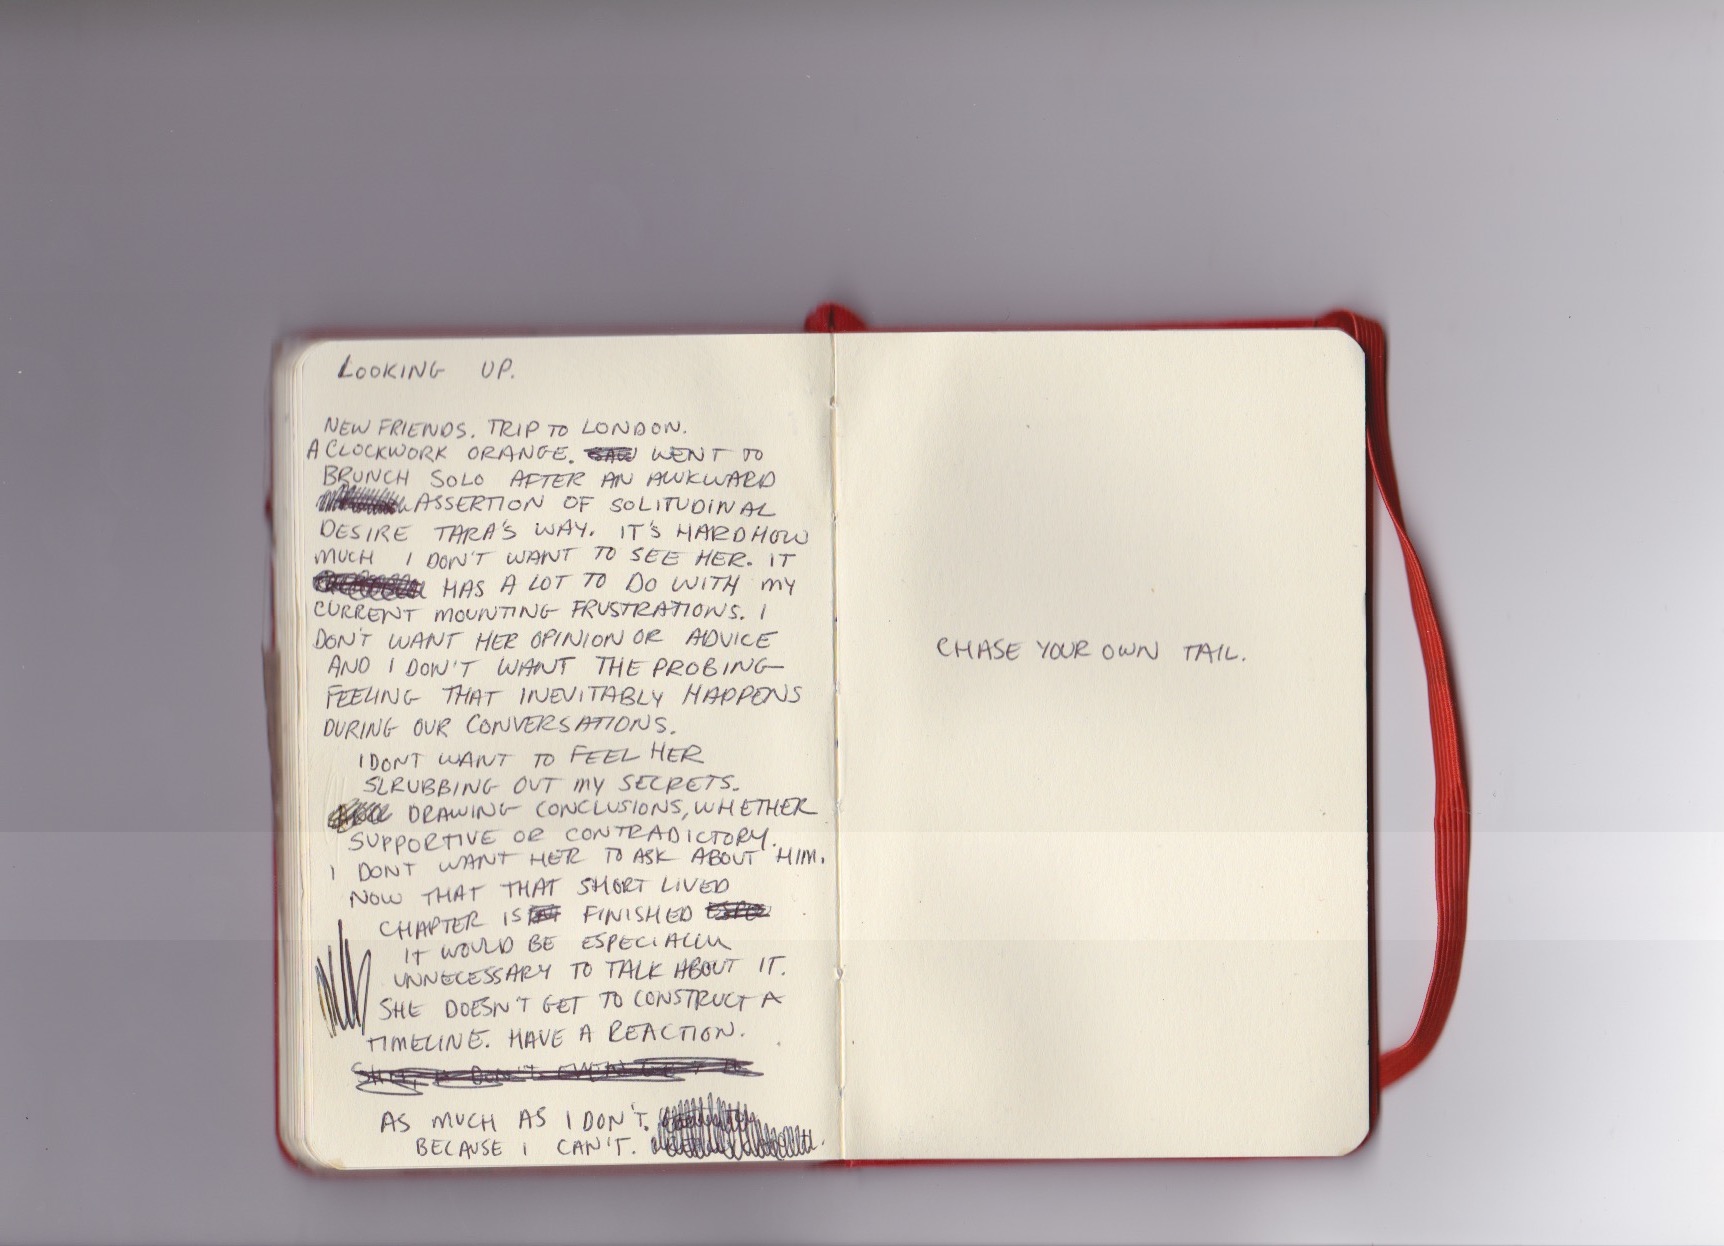 LOOKING UP.
NEW FRIENDS. TRIP TO LONDON.
A CLOCKWORK ORANGE. SAW WENT TO
BRUNCH SOLO AFTER AN AWKWARD
ASSERTION OF SOLITUDINAL
DESIRE TARA'S WAY. IT'S HARD HOW
MUCH I DON'T WANT TO SEE HER. IT
HAS A LOT TO DO WITH MY
CURRENT MOUNTING FRUSTRATIONS. I
DON'T WANT HER OPINION OR ADVICE
AND I DON'T WANT THE PROBING
FEELING THAT INEVITABLY HAPPENS
DURING OUR CONVERSATIONS.
I DONT WANT TO FEEL HER
SCRUBBING OUT MY SECRETS.
DRAWING CONCLUSIONS, WHETHER
SUPPORTIVE OR CONTRADICTORY.
I DONT WANT HER TO ASK ABOUT HIM.
NOW THAT THAT SHORT LIVED
CHAPTER IS FINISHED
IT WOULD BE ESPECIALLY
UNNECESSARY TO TALK ABOUT IT.
SHE DOESN'T GET TO CONSTRUCT A
TIMELINE. HAVE A REACTION.
AS MUCH AS I DON'T.
BECAUSE I CAN'T.
CHASE YOUR OWN TAIL.